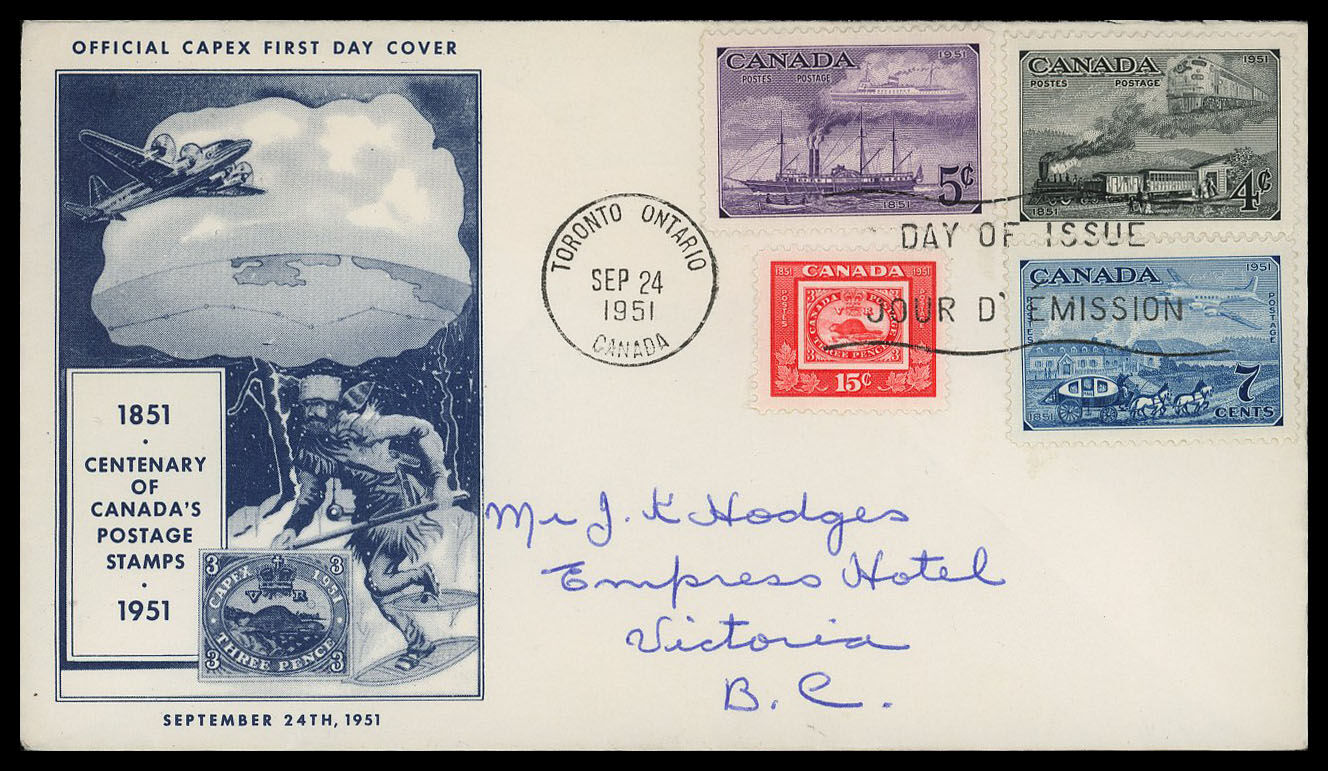 OFFICIAL CAPEX FIRST DAY COVER
1851
·
CENTENARY
OF
CANADA'S
POSTAGE
STAMPS
·
1951
3 3
CAPEX 1951
V R
THREE PENCE
3 3
SEPTEMBER 24TH, 1951
TORONTO ONTARIO
SEP 24
1951
CANADA
CANADA 1951
POSTES POSTAGE
1851
5¢
CANADA 1951
POSTES POSTAGE
1851
4¢
DAY OF ISSUE
JOUR D'EMISSION
1851 CANADA 1951
POSTES
3 3
CANADA POSTAGE
THREE PENCE
3 3
15¢
CANADA 1951
POSTES POSTAGE
1851
7
CENTS
Mr J. K Hodges
Empress Hotel
Victoria
B. C.